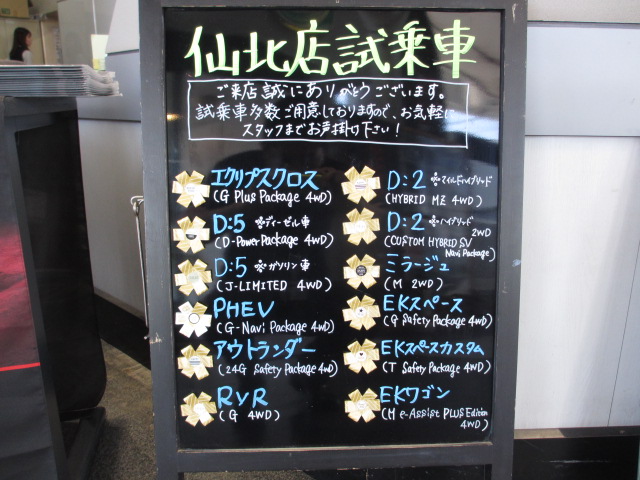 仙北店試乗車
ご来店誠にありがとうございます。
試乗車多数ご用意しておりますので、お気軽に
スタッフまでお声掛け下さい!
エクリプスクロス
(G Plus Package 4WD)
D:5 ※ディーゼル車
(D-Power Package 4WD)
D:5 ※ガソリン車
(J-LIMITED 4WD)
PHEV
(G-Navi Package 4WD)
アウトランダー
(24G Safety Package 4WD)
RVR
(G 4WD)
D:2 ※マイルドハイブリッド
(HYBRID MZ 4WD)
D:2 ※ハイブリッド
2WD
(CUSTOM HYBRID SV
Navi Package)
ミラージュ
(M 2WD)
EKスペース
(G Safety Package 4WD)
EKスペースカスタム
(T Safety Package 4WD)
EKワゴン
(M e-Assist PLUS Edition
4WD)